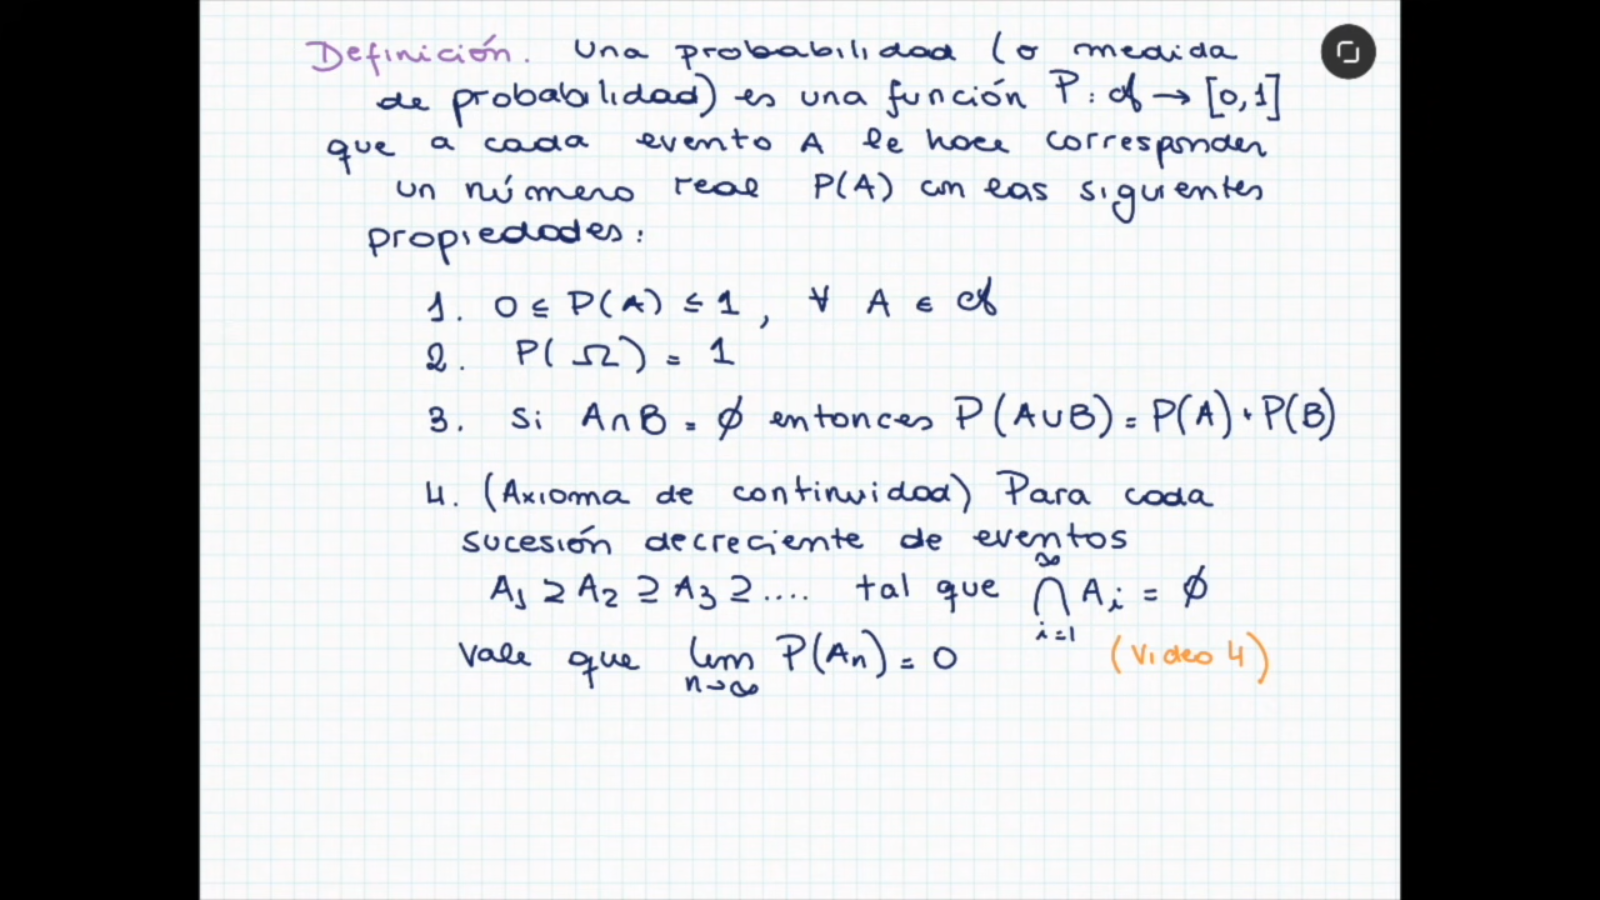 Definición. Una probabilidad (o medida
de probabilidad) es una función P: 𝒜 → [0,1]
que a cada evento A le hace corresponder
un número real P(A) con las siguientes
propiedades:
1. 0 ≤ P(A) ≤ 1, ∀ A ∈ 𝒜
2. P(Ω) = 1
3. Si A∩B = ∅ entonces P(A∪B) = P(A) + P(B)
4. (Axioma de continuidad) Para cada
sucesión decreciente de eventos
A₁ ⊇ A₂ ⊇ A₃ ⊇ .... tal que ⋂_{i=1}^{∞} A_i = ∅
vale que lim_{n→∞} P(A_n) = 0 (Video 4)